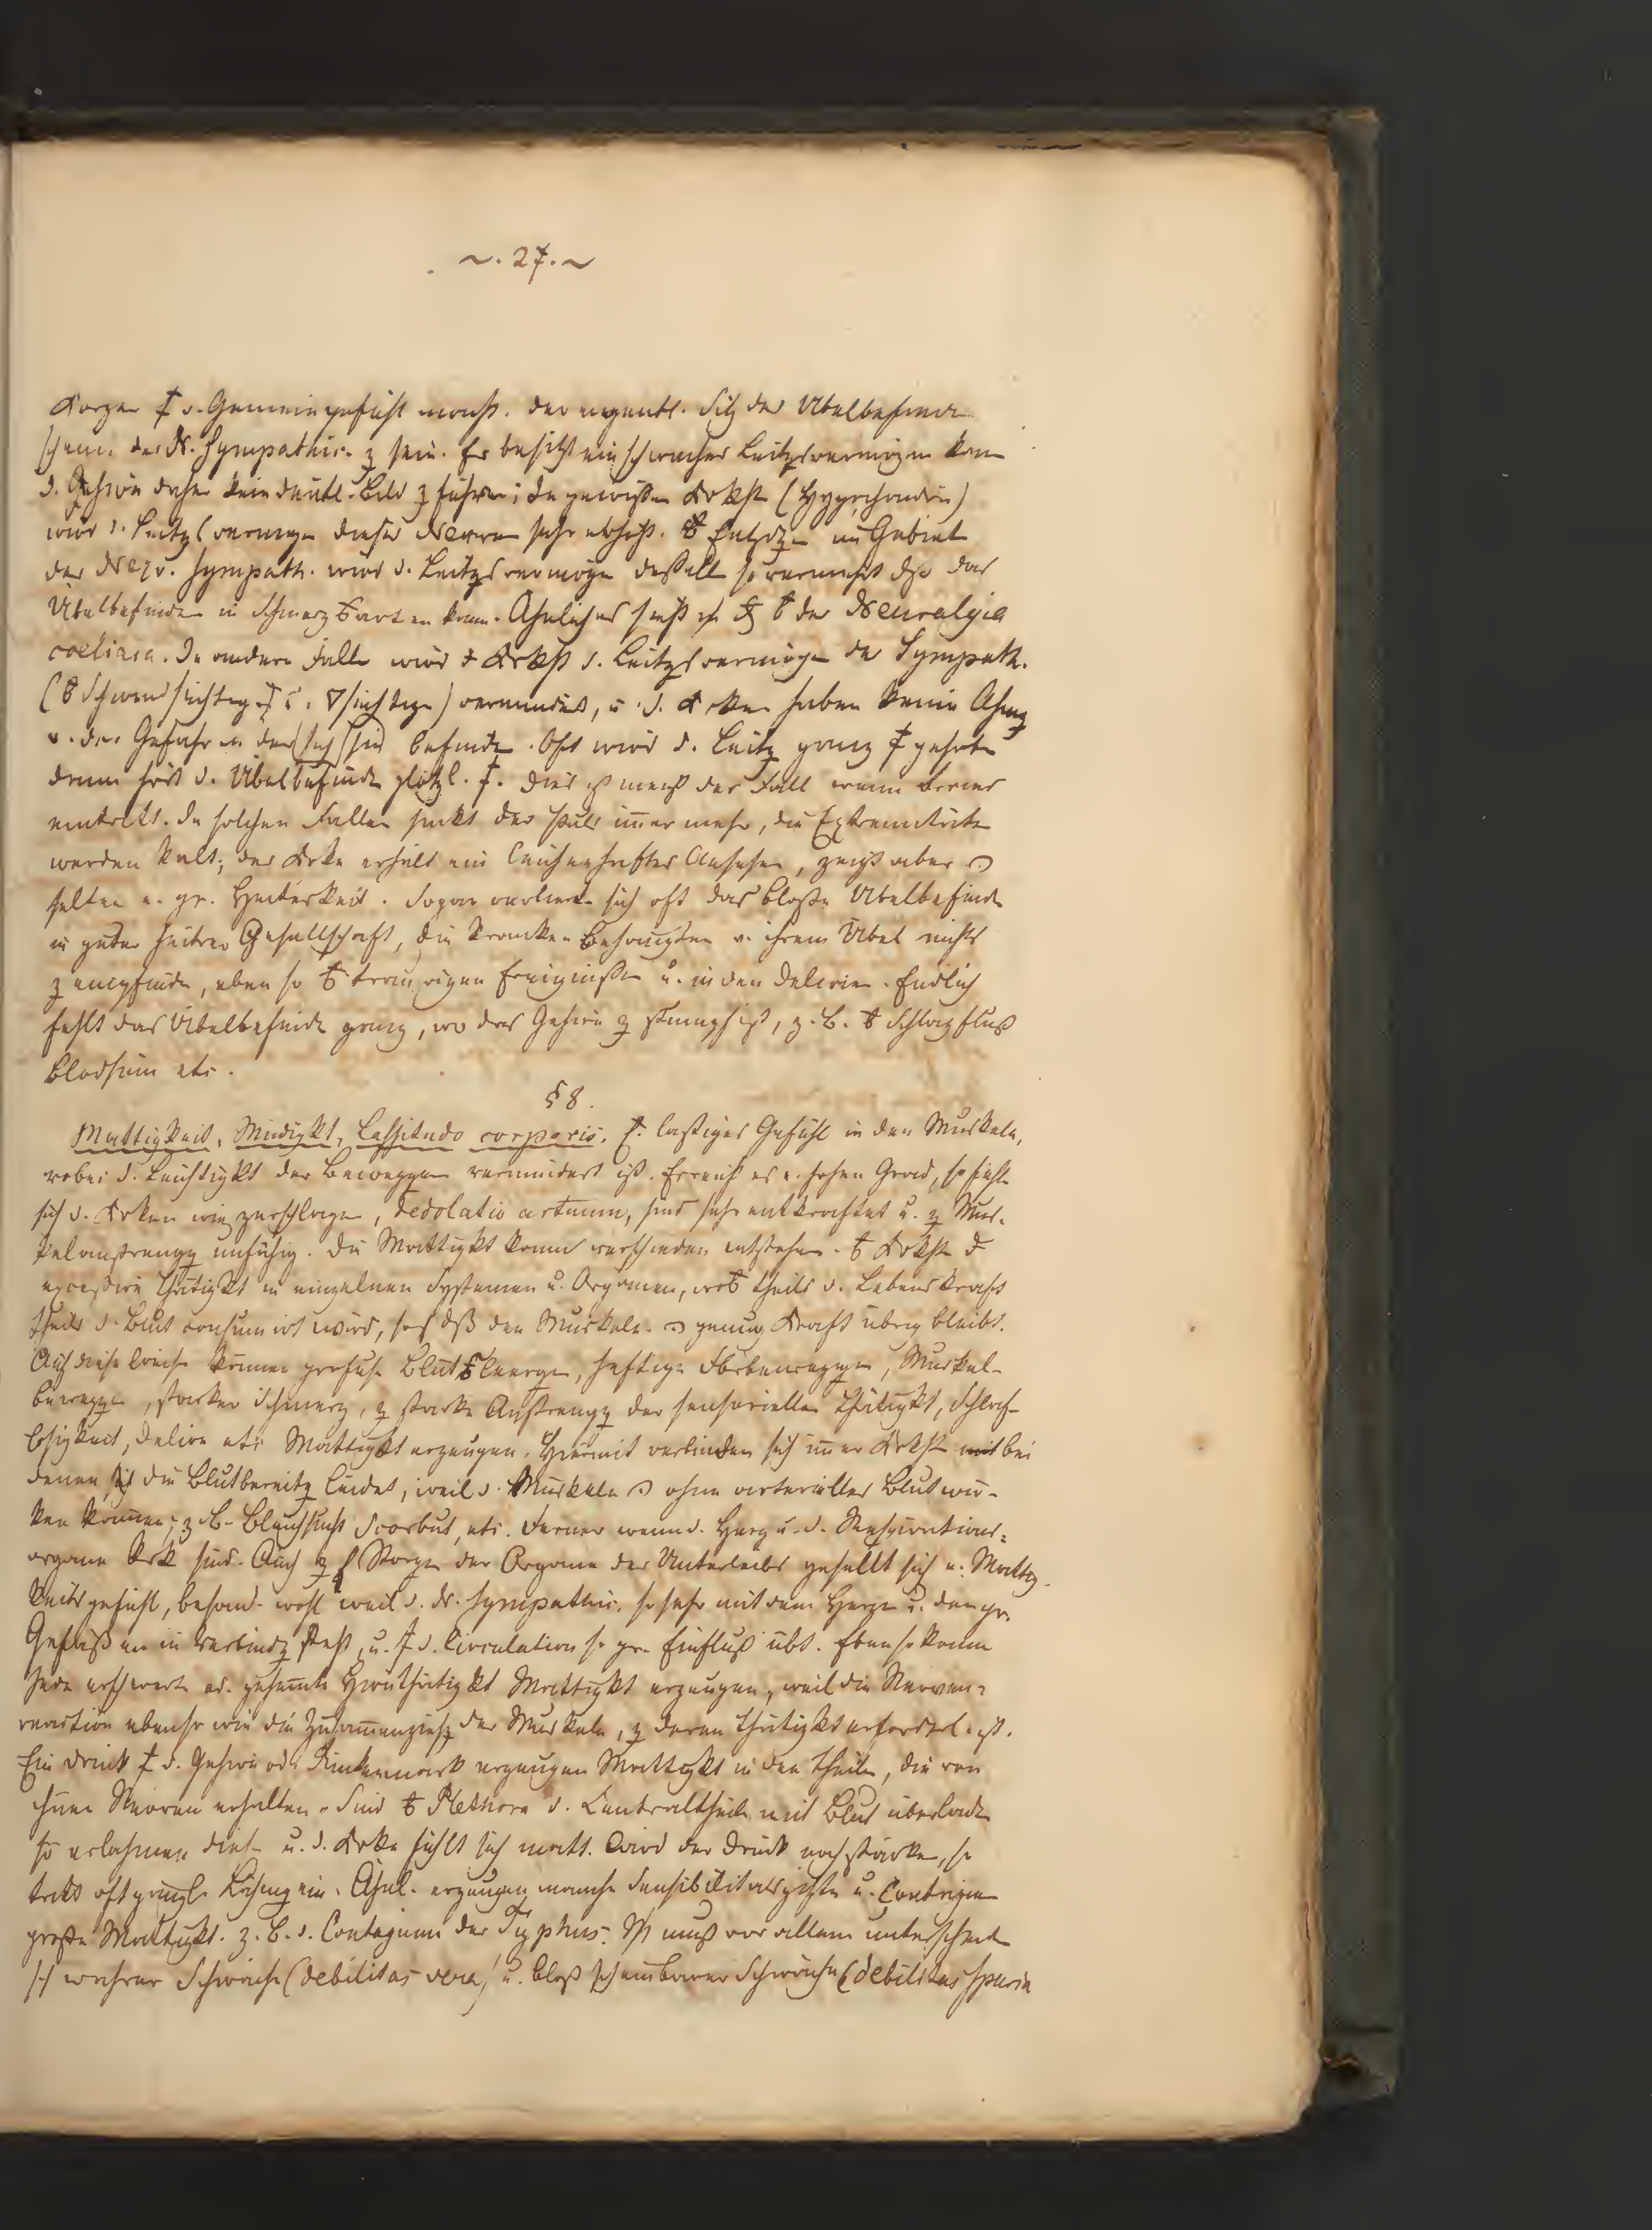 ~. 27. ~
d. Gemeingefühl der eigentl. Sitz des Übelbefinden
scheint der N. Sympathic. z sein. Er besitzt ein schwaches Leitzsvermögen kann
d. Gehirn daher kein deutl. Bild z führen; In gewißen Krkht (Hypochondrie)
wird d. Leitzsvermögen dieses Nerven sehr erhöht. Entzdz im Gebiet
des Nerv. Sympath. wird d. Leitzsvermögen deßelb so vermehrt dß das
Übelbefinden in Schmerz kann. Ähnliches der Neuralgia
coeliaca. In andern Fällen wird d. Leitzsvermögen des Sympath.
(Schwindsüchtig süchtige) vermindert, u. d. Krken haben keine Ahng
v. der Gefahr in der sich sie befinde. Oft wird d. Leitz ganz
dann hört d. Übelbefinde plötzl. Dies ist meist der Fall wenn Brand
eintritt. In solchen Fällen sinkt der Puls imer mehr, die Extremitäten
werden kalt, der Krke erhält ein leichenhaftes Ansehen, zeigt aber
selten e. gr. Heiterkeit. Sogar verliert sich oft das bloße Übelbefinde
in guter heitrer Gesellschaft, die Kranken v. ihrem Übel nichts
z empfinde, eben so traurigen Ereignißen u. in den Delirien. Endlich
fehlt das Übelbefinde ganz, wo das Gehirn z stumpf ist, z. B. Schlagfluß
Blödsinn etc.
§ 8.
Mattigkeit, Müdigkt, Lassitudo corporis. E. lästiges Gefühl in den Muskeln,
wobei d. Leichtigkt der Beweggen vermindert ist. Erreicht es e. hohen Grad, so fühlt
sich d. Krken wie zerschlagen, dedolatio artuum, sind sehr entkräftet u. z Mus-
kelanstrengg unfähig. Die Mattigkt kann verschieden entstehen. Krkht
excessive Thätigkt in einzelnen Systemen u. Organen, theils d. Lebenskraft
theils d. Blut consumirt wird, so dß den Muskeln genug Kraft übrig bleibt.
Auf diese Weise können profuse Blut leerge, heftige Muskel-
bewegge, starker Schmerz, z starke Anstrengg der sensoriellen Thätigkt, Schlaf-
losigkeit, Delire etc Mattigkt erzeugen. Hiermit verbinden sich imer Krkht mit bei
denen die Blutbereitg leidet, weil d. Muskeln ohne arterielles Blut wir-
ken könen; z. B. Bleichsucht Scorbut, etc. Ferner wenn d. Herz u. d. Respirations-
organe krk sind. Auch z Störge der Organe des Unterleibs gesellt sich e. Mattig-
keitsgefühl, besond. wohl weil d. N. Sympathic. so sehr mit dem Herze u. den gr.
Gefäßen in verbindg steht, u. d. Circulation so gr. Einfluß übt. Ebenso kann
jede erschwerte od. gehemte Hautthätigkt Mattigkt erzeugen, weil die Nerven-
reaction ebenso wie die Zusamenziehg der Muskeln, z deren Thätigkt erforderl. ist.
Ein Druck d. Gehirn od. Rückenmark erzeugen Mattigkt in den Theilen, die von
ihnen Nerven erhalten. Sind Plethora d. Centraltheile mit Blut überlade
so erlahmen diese u. d. Krke fühlt sich matt. Wird der Druck noch stärker, so
tritt oft gänzl. Lähmg ein. Ähnl. erzeugen manche Sensibilitätsgifte u. Contagien
große Mattigkt. z. B. d. Contagium des Typhus. muß vor allem unterscheide
wahrer Schwäche (debilitas vera) u. bloß scheinbarer Schwäche (debilitas spuria